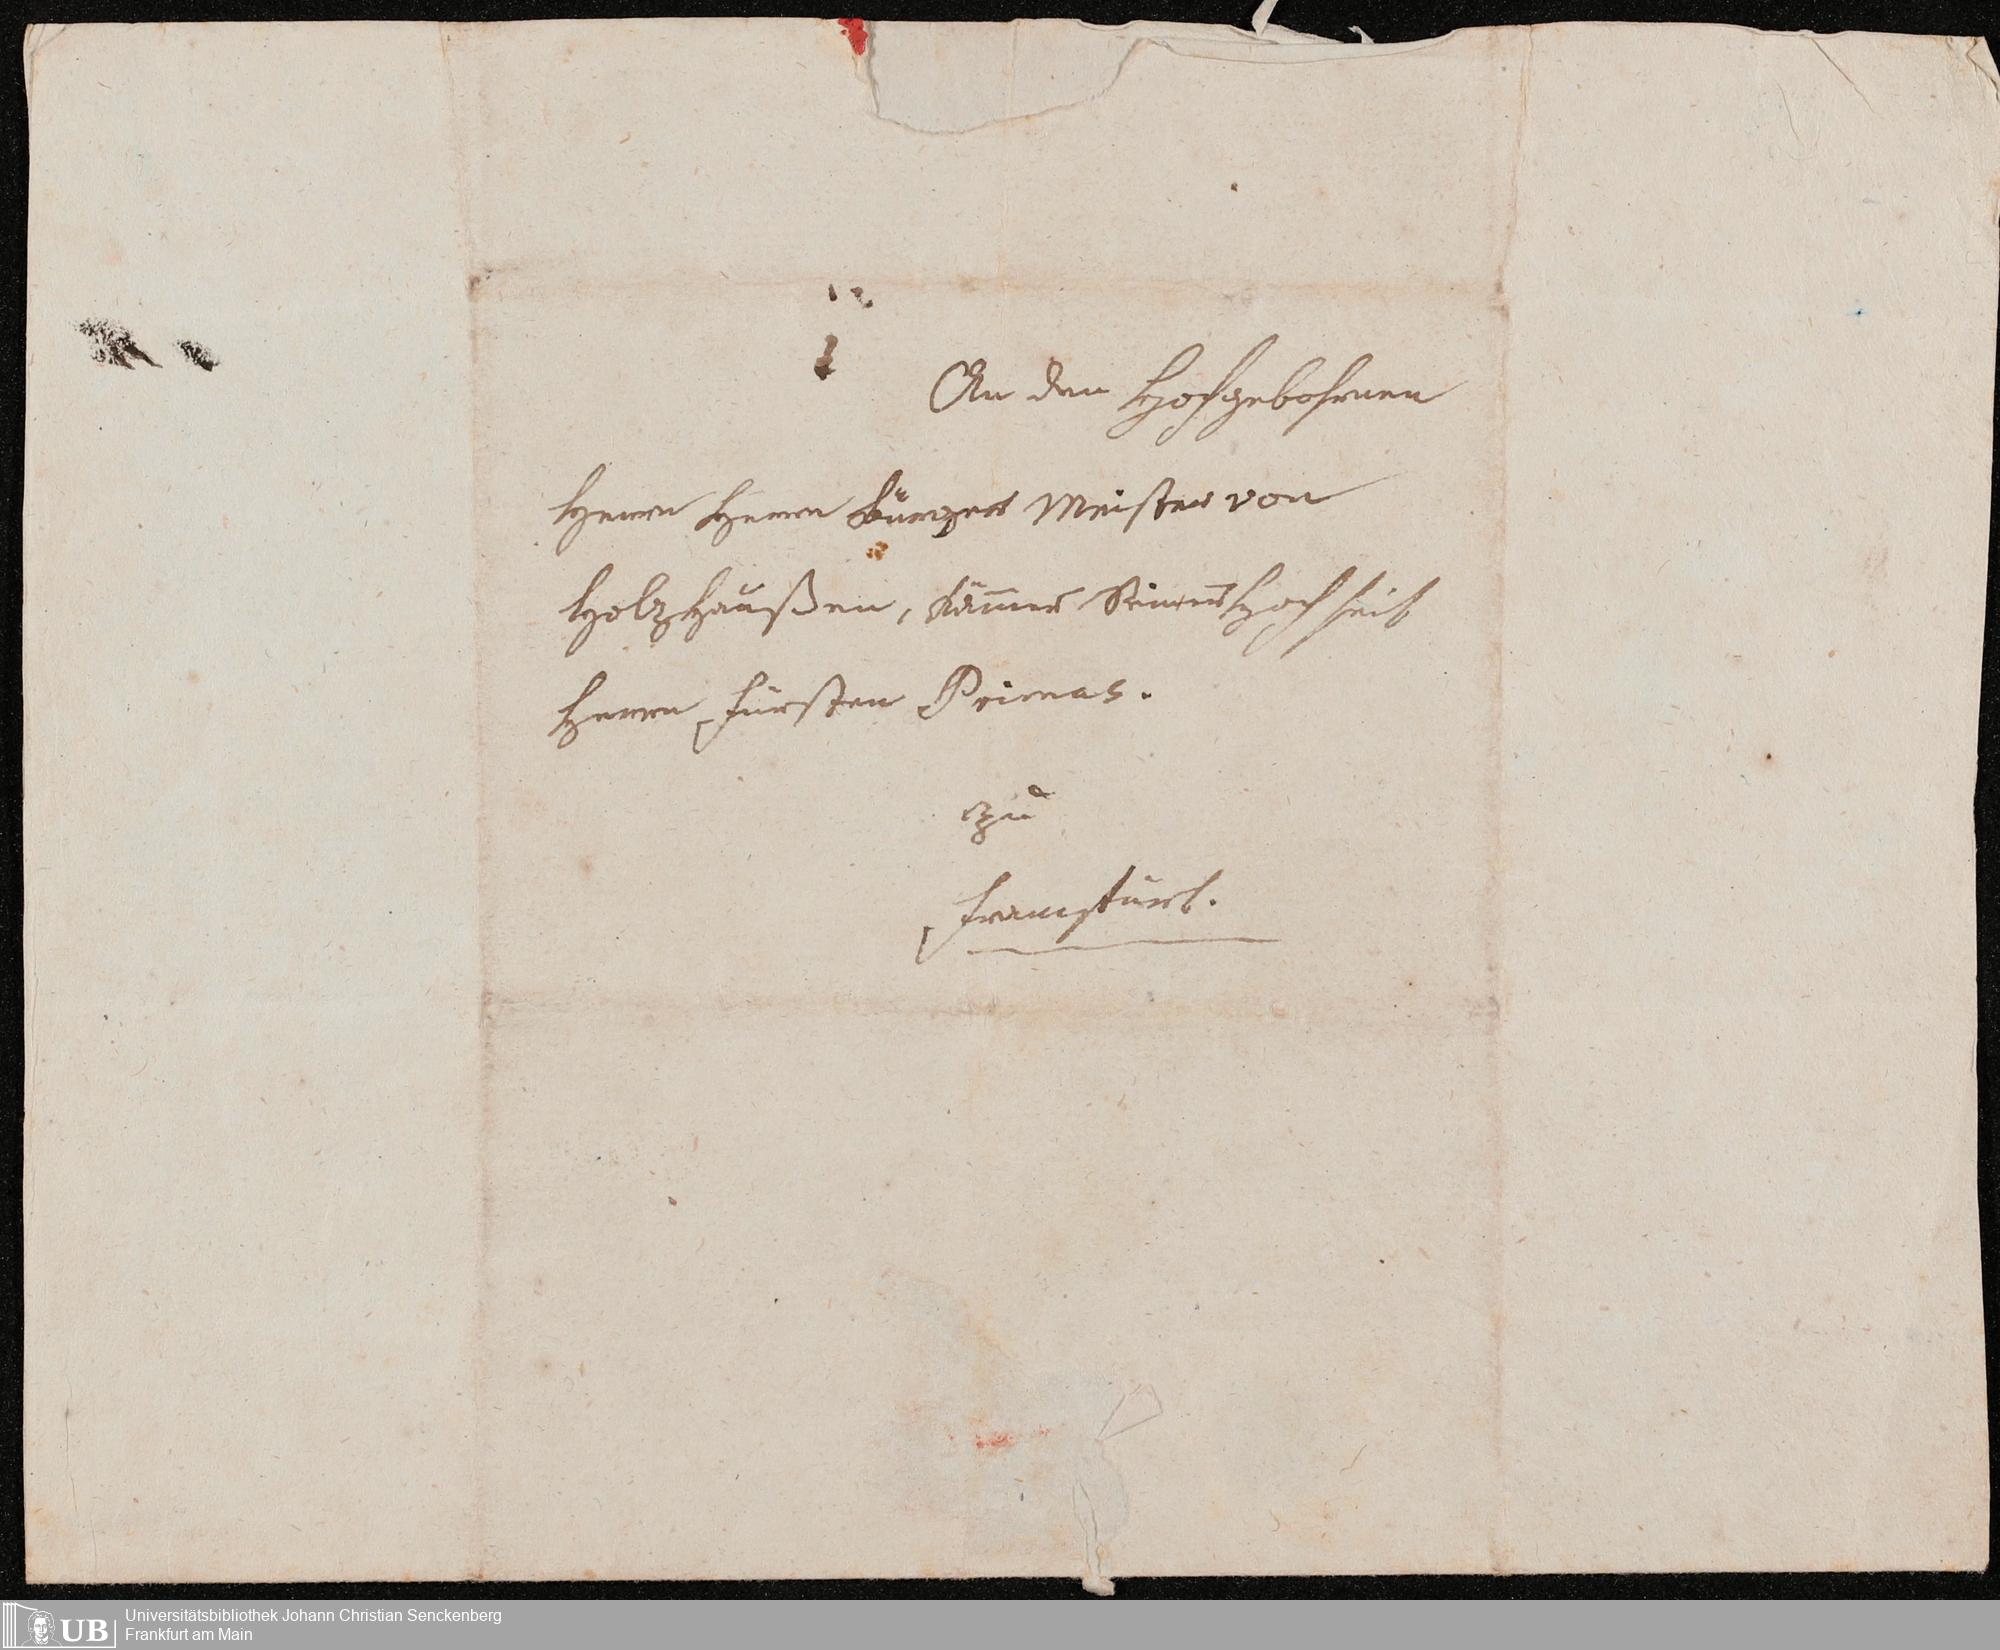 An den Hochgebohrnen
Herrn Herrn Bürger Meister von
Holzhaußen, Kämmer Seiner Hochheit
Herrn Fürsten Primas.
zu
Franckfurt.
UB
Universitätsbibliothek Johann Christian Senckenberg
Frankfurt am Main